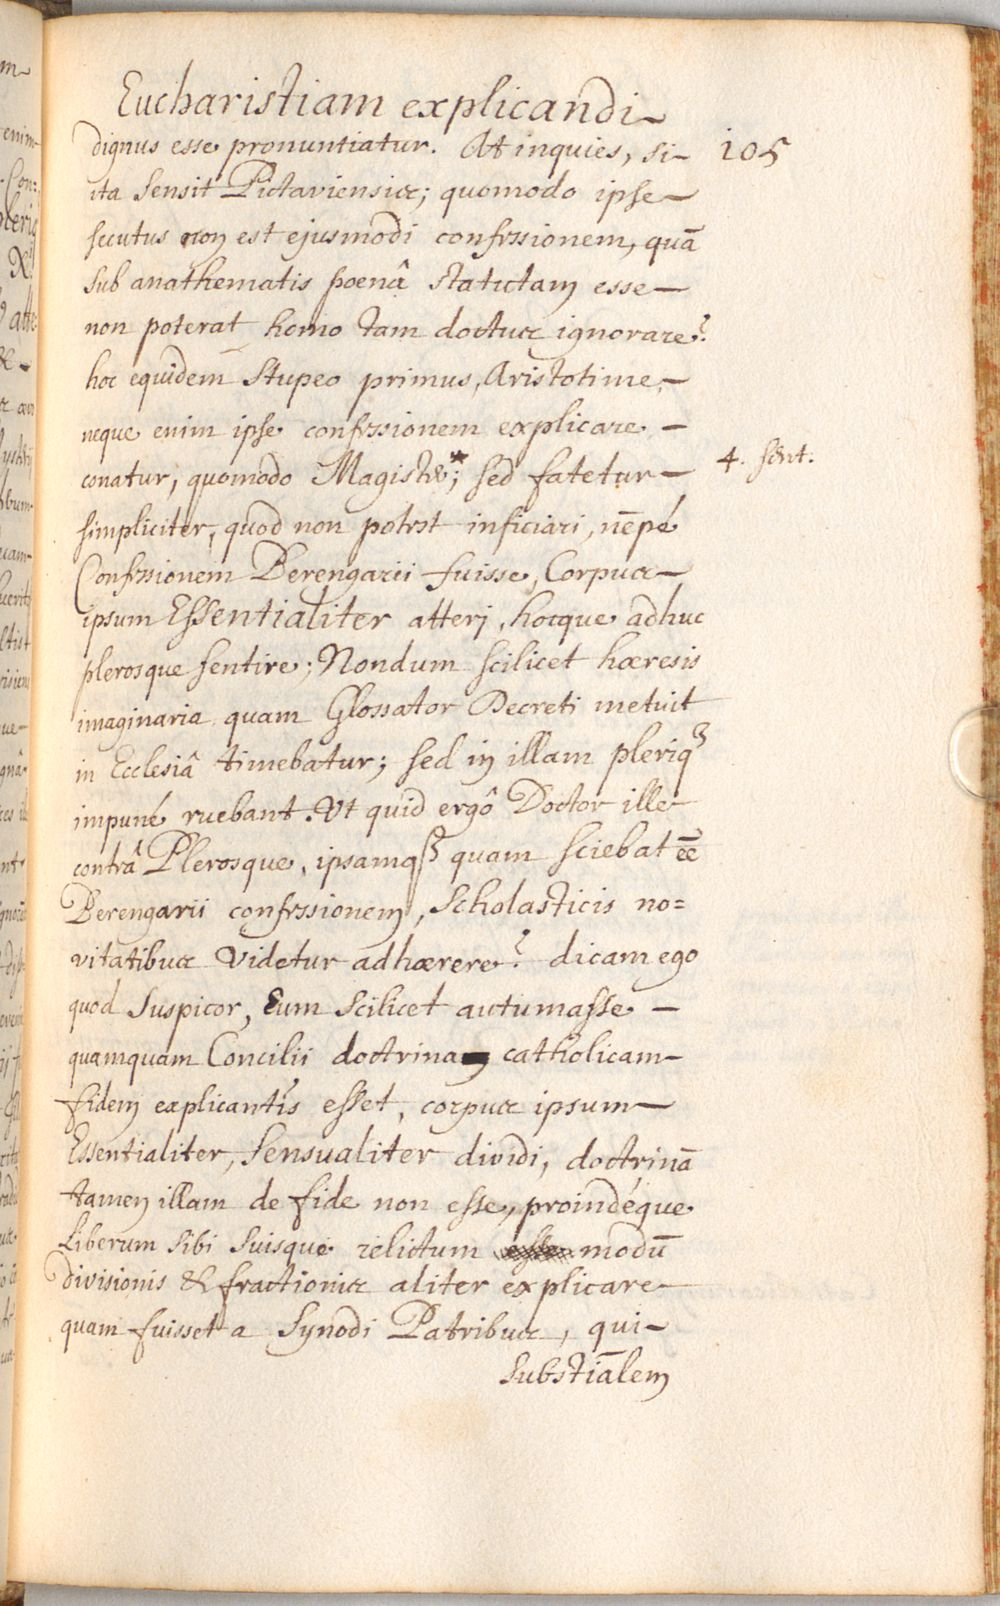 Eucharistiam explicandi
105
dignus esse pronuntiatur. At inquies, si
ita sensit Pictaviensis; quomodo ipse
secutus non est ejusmodi confessionem, quā
sub anathematis poenâ statutam esse
non poterat homo tam doctus ignorare?
hoc equidem stupeo primus, Aristotime,
neque enim ipse confessionem explicare
conatur, quomodo Magister*; sed fatetur
4. sent:
simpliciter, quod non potest inficiari, nēpé
Confessionem Berengarii fuisse, Corpus
ipsum Essentialiter atteri, hocque adhuc
plerosque sentire; Nondum scilicet hæresis
imaginaria quam Glossator Decreti metuit
in Ecclesiâ timebatur; sed in illam pleriq3
impuné ruebant. Ut quid ergô Doctor ille
contrâ Plerosque, ipsamq3 quam sciebat ēē
Berengarii confessionem, scholasticis no=
vitatibus videtur adhærere? dicam ego
quod suspicor, Eum scilicet autumasse
quamquam Concilii doctrinam catholicam
fidem explicantis esset, corpus ipsum
Essentialiter, sensualiter dividi, doctrinā
tamen illam de fide non esse, proindéque
Liberum sibi suisque relictum modū
divisionis & fractionis aliter explicare
quam fuisset a Synodi Patribus, qui
substīalem